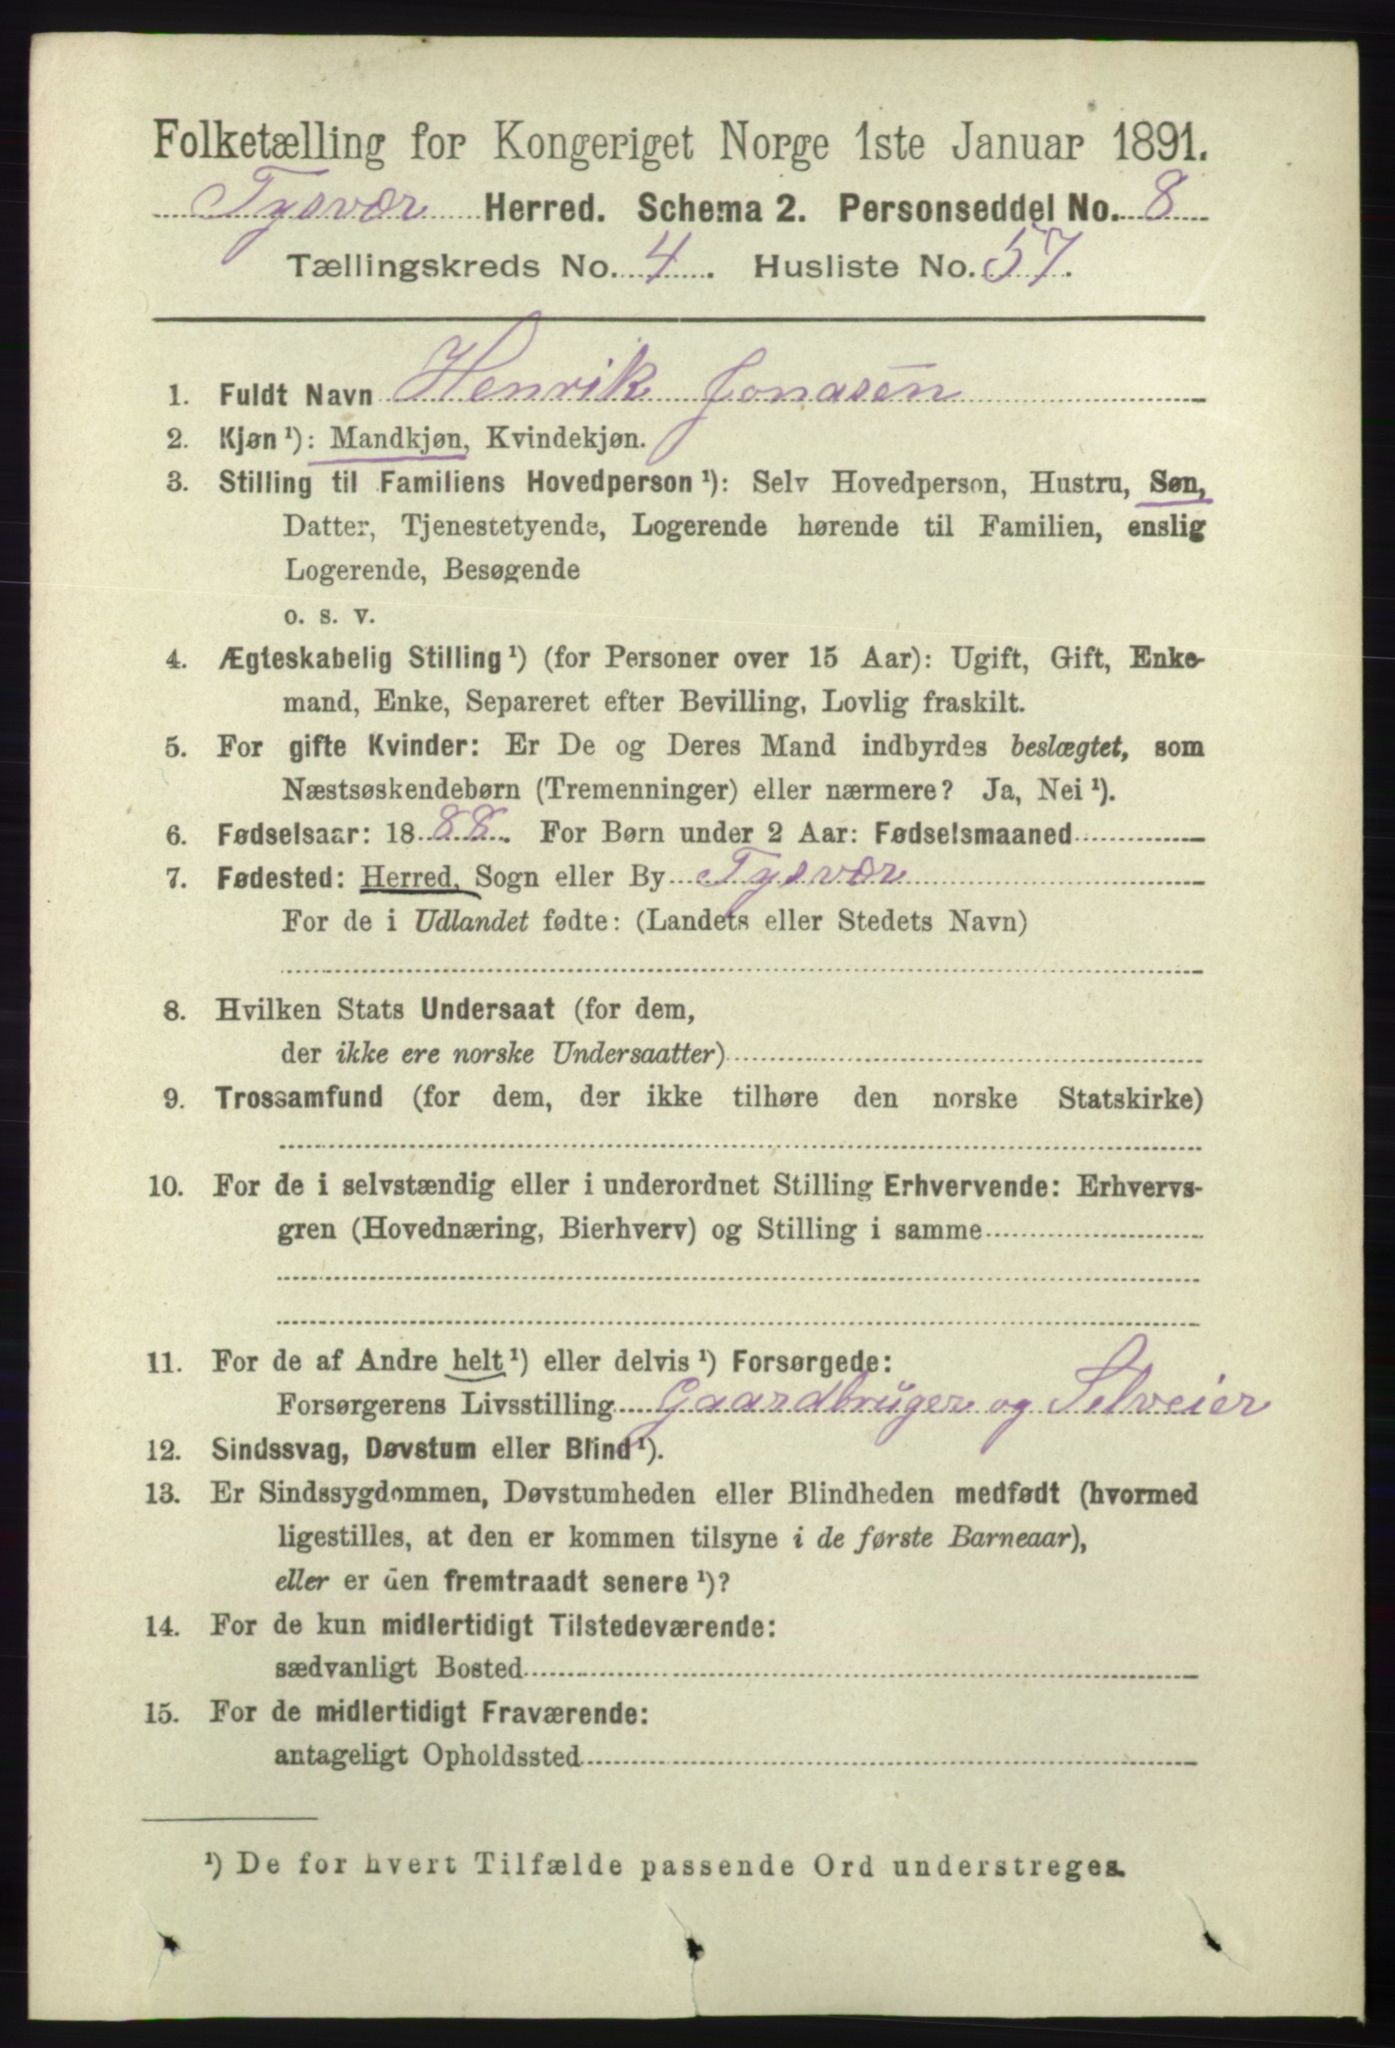 Folketælling for Kongeriget Norge 1ste Januar 1891.
Tysvær Herred. Schema 2. Personseddel No. 8
Tællingskreds No. 4. Husliste No. 57.
1. Fuldt Navn Henrik Jonasen
2. Kjøn¹): Mandkjøn, Kvindekjøn.
3. Stilling til Familiens Hovedperson¹): Selv Hovedperson, Hustru, Søn,
Datter, Tjenestetyende, Logerende hørende til Familien, enslig
Logerende, Besøgende
o. s. v.
4. Ægteskabelig Stilling¹) (for Personer over 15 Aar): Ugift, Gift, Enke-
mand, Enke, Separeret efter Bevilling, Lovlig fraskilt.
5. For gifte Kvinder: Er De og Deres Mand indbyrdes beslægtet, som
Næstsøskendebørn (Tremenninger) eller nærmere? Ja, Nei¹).
6. Fødselsaar: 1888. For Børn under 2 Aar: Fødselsmaaned
7. Fødested: Herred, Sogn eller By Tysvær
For de i Udlandet fødte: (Landets eller Stedets Navn)
8. Hvilken Stats Undersaat (for dem,
der ikke ere norske Undersaatter)
9. Trossamfund (for dem, der ikke tilhøre den norske Statskirke)
10. For de i selvstændig eller i underordnet Stilling Erhvervende: Erhvervs-
gren (Hovednæring, Bierhverv) og Stilling i samme
11. For de af Andre helt¹) eller delvis¹) Forsørgede:
Forsørgerens Livsstilling Gaardbruger og Selveier
12. Sindssvag, Døvstum eller Blind¹).
13. Er Sindssygdommen, Døvstumheden eller Blindheden medfødt (hvormed
ligestilles, at den er kommen tilsyne i de første Barneaar),
eller er den fremtraadt senere¹)?
14. For de kun midlertidigt Tilstedeværende:
sædvanligt Bosted
15. For de midlertidigt Fraværende:
antageligt Opholdssted
¹) De for hvert Tilfælde passende Ord understreges.